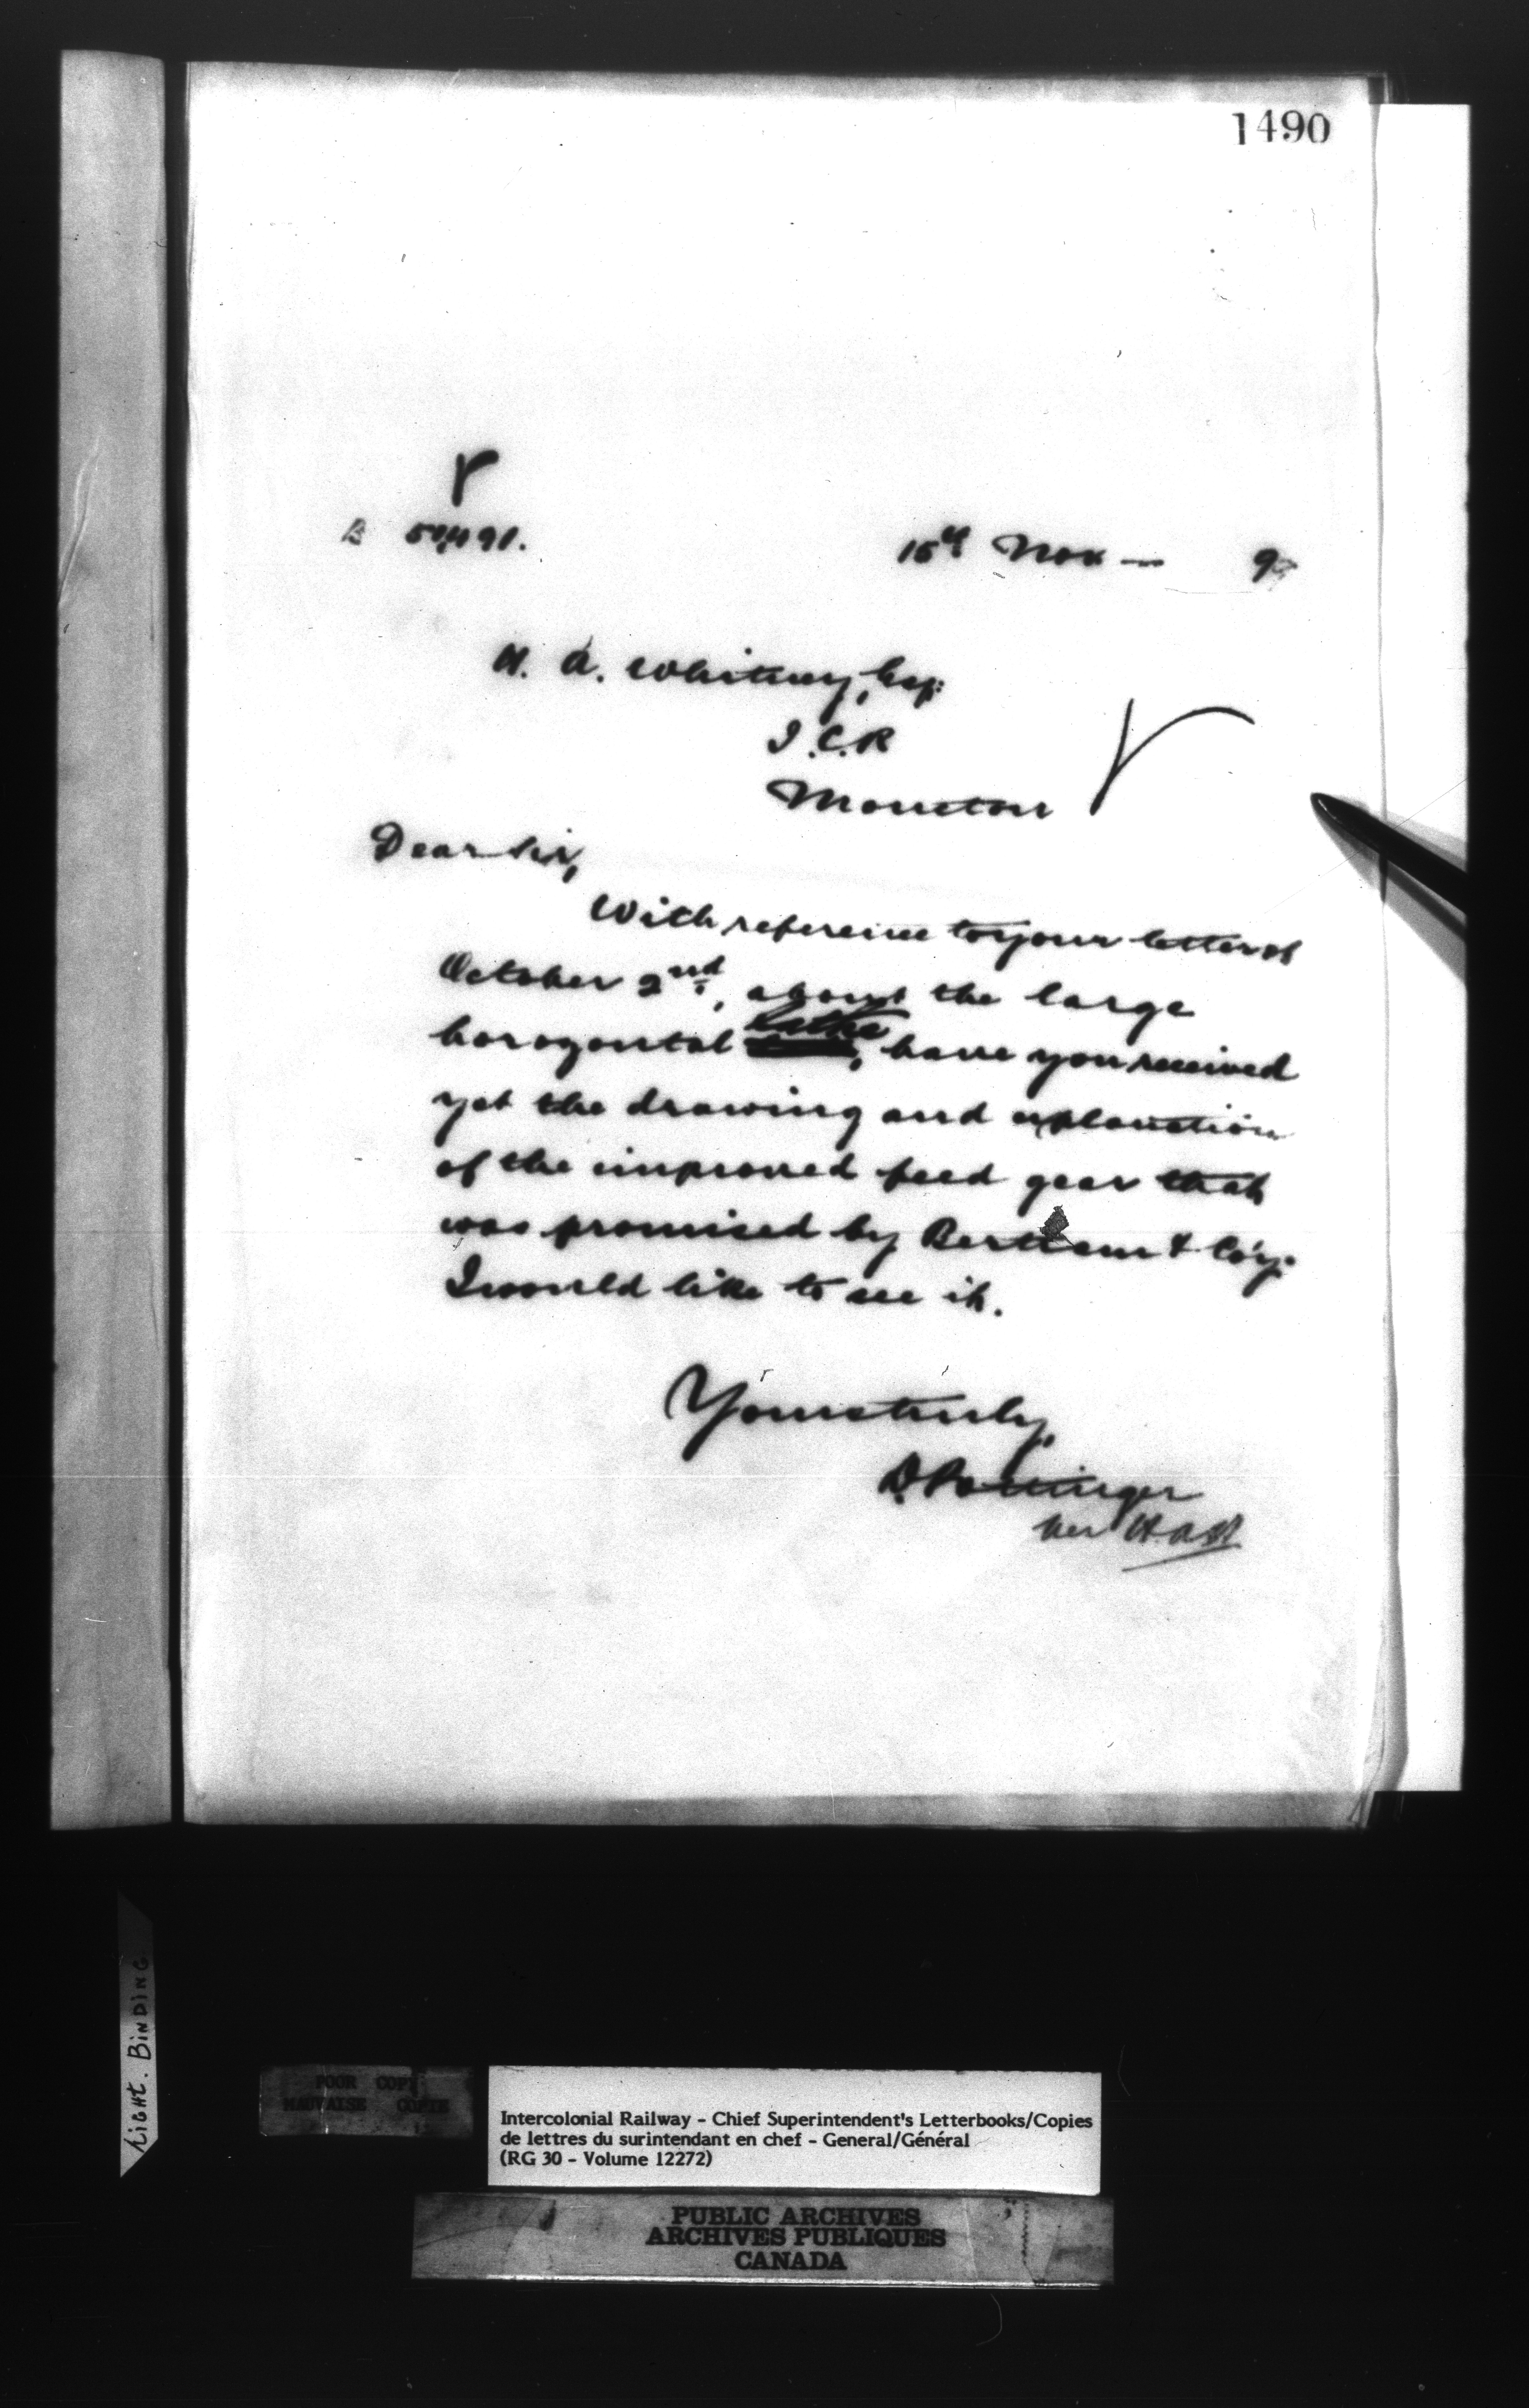 1490
B 50,491.
15th Nov — 9
H. A. Whitney, Esq:
I.C.R
Moncton
Dear Sir,
With reference to your letter of
October 2nd, about the large
horozontal lathe, have you received
yet the drawing and explanation
of the improved feed gear that
was promised by Bertram & Coy.
I would like to see it.
Yours truly,
D. Pottinger
per
LIGHT. BINDING
POOR COPY
MAUVAISE COPIE
Intercolonial Railway - Chief Superintendent's Letterbooks/Copies
de lettres du surintendant en chef - General/Général
(RG 30 - Volume 12272)
PUBLIC ARCHIVES
ARCHIVES PUBLIQUES
CANADA